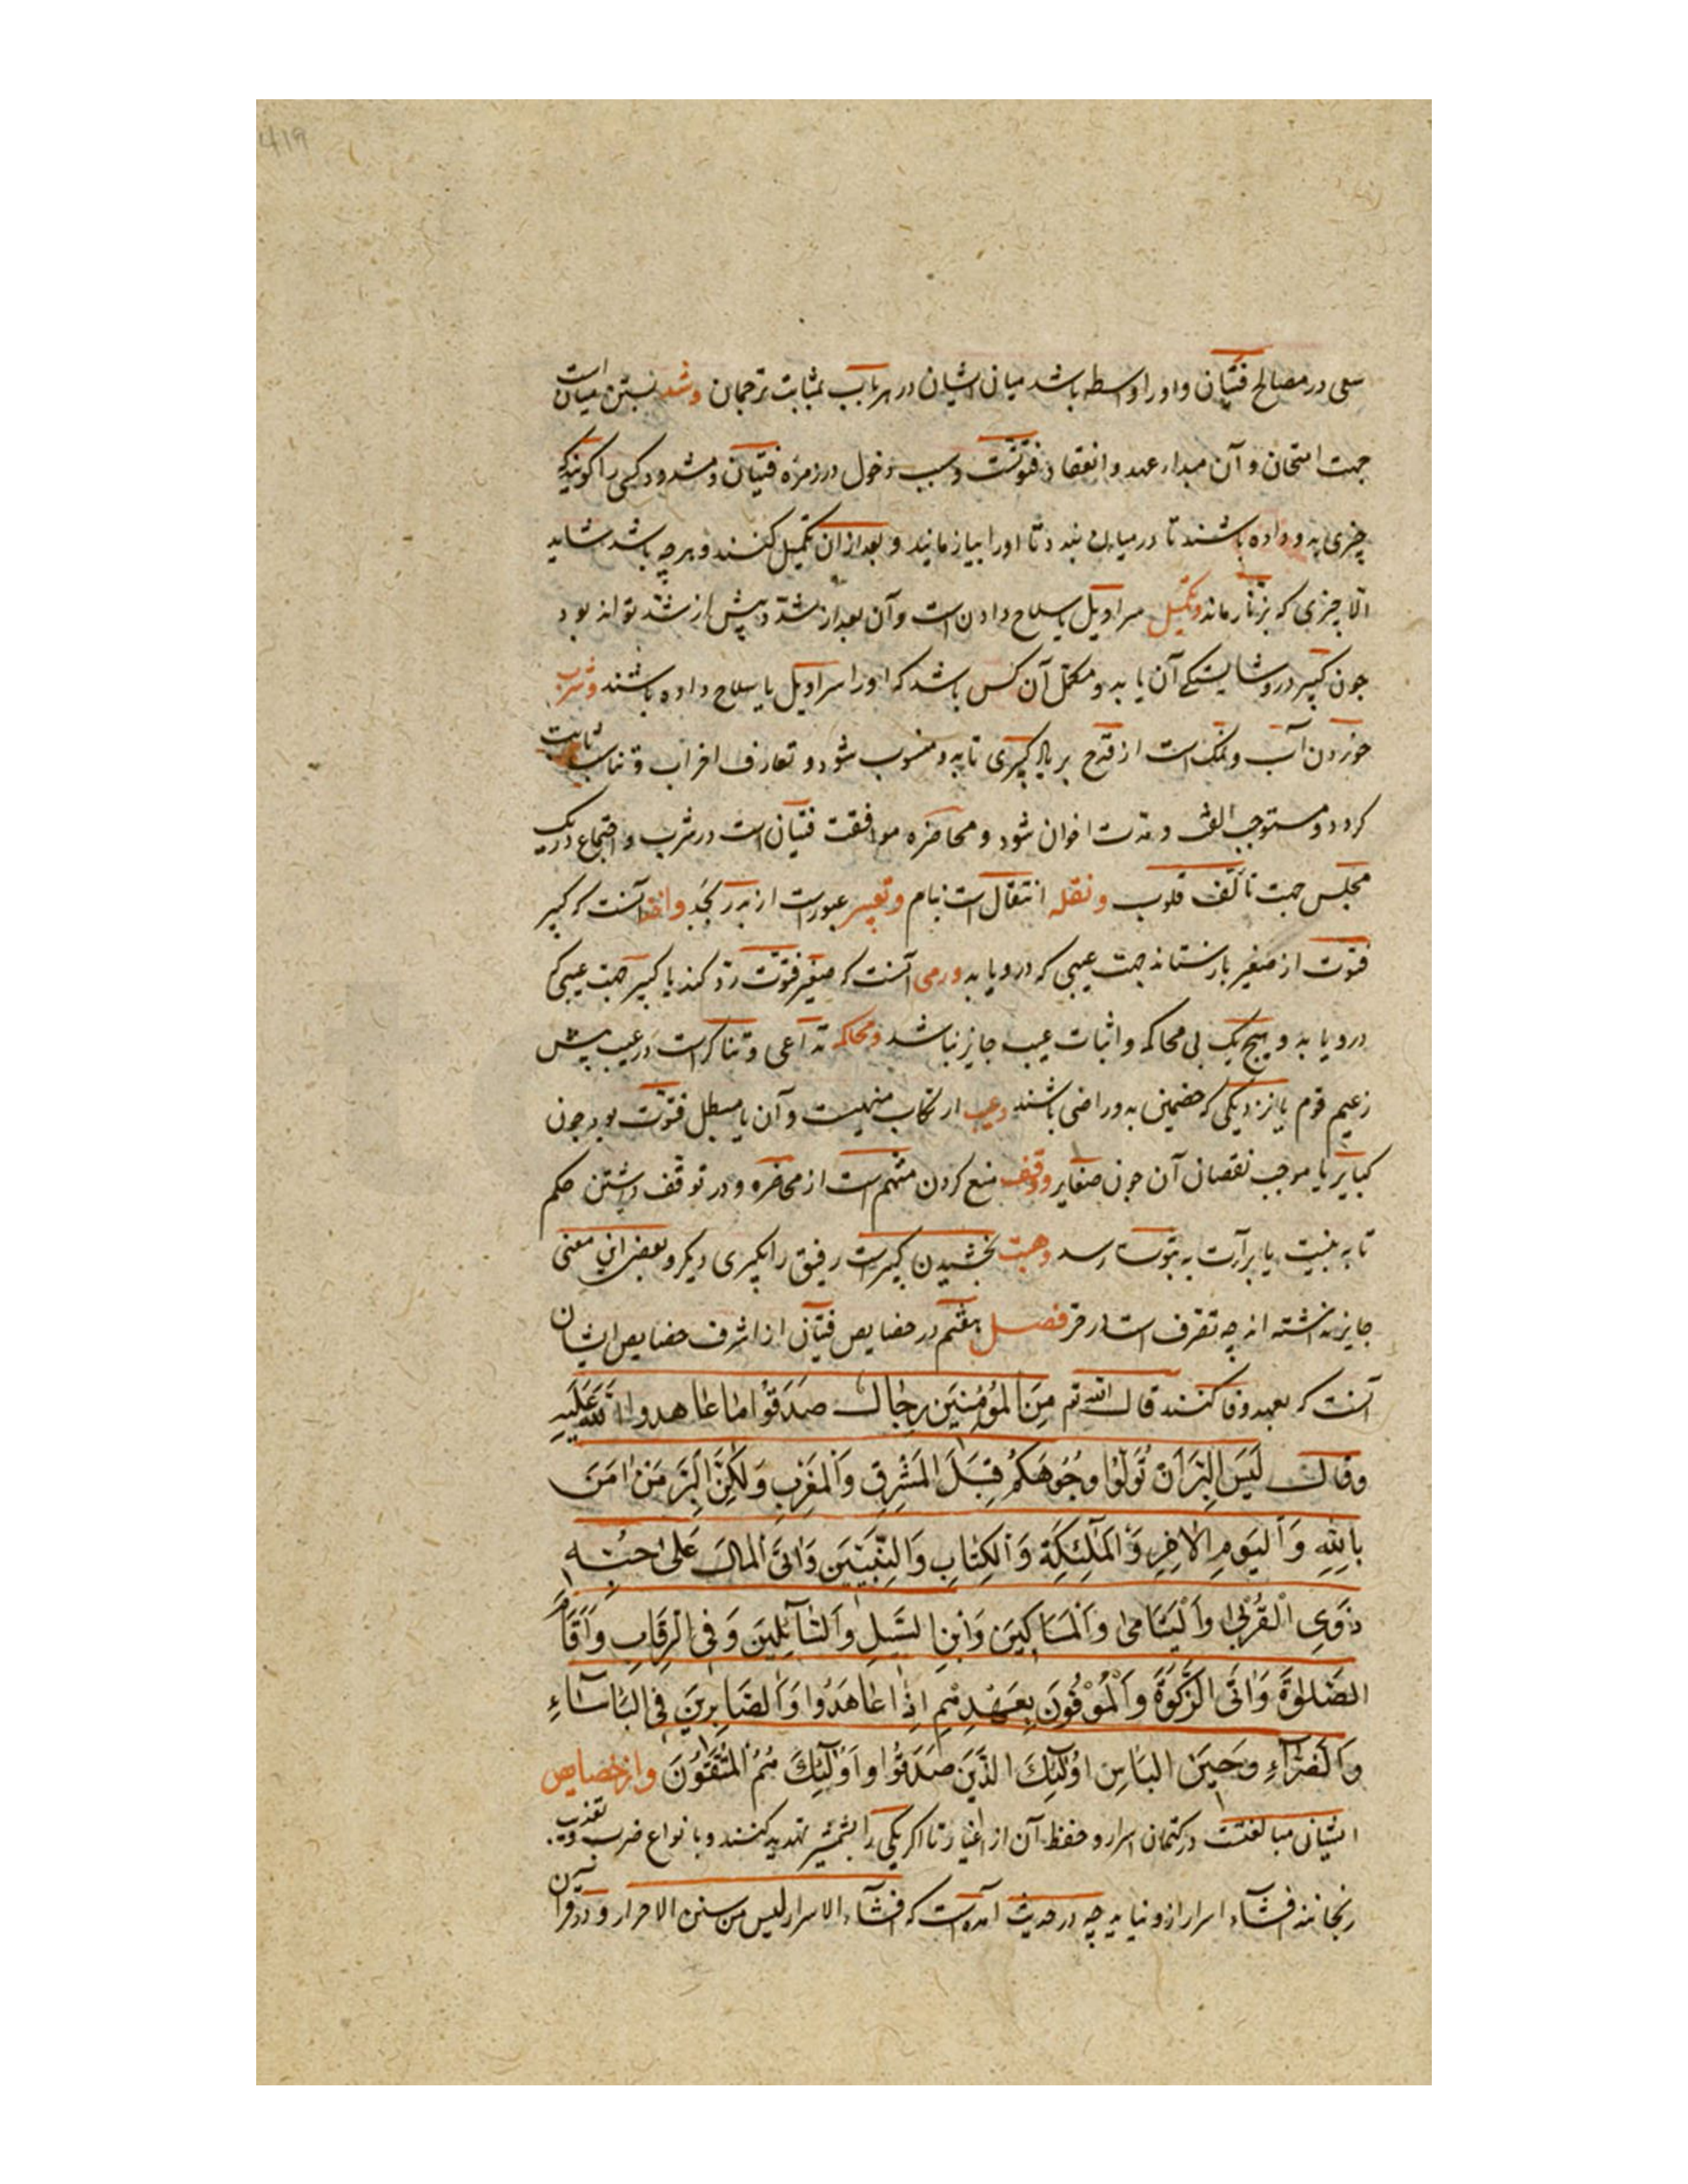 سعی در مصالح فتیان و او را وسطه باشد میان ایشان در هر باب بمثابت ترجمان و شد بستن میان است
جهت امتحان و آن مبداء عهد و انعقاد فتوتست و سبب دخول در زمره فتیان و مشدود کسی را کویند که
چیزی بدو داده باشند تا در میان بندد تا او را بیازمایند و بعد از ان تکمیل کنند و هر چه باشد شاید
الا چیزی که بزنار ماند و تکمیل سراویل یا سلاح دادن است و آن بعد از شد و پیش از شد تواند بود
جون کبیر درو شایستکی آن یابد و مکمل آن کس باشد که او را سراویل یا سلاح داده باشند و شرب
خوردن آب و نمک است از قدح بر یاد کبیری تا بدو منسوب شود و تعارف احزاب و تناسب ثابت
کردد و مستوجب الف و مودت اخوان شود و محاضره موافقت فتیان است در شرب و اجتماع در یک
مجلس جهت تألف قلوب و نقله انتقال است بنام و تعبیر عبورست از پدر بجد و اخذ آنست که کبیر
فتوت از صغیر باز ستاند جهت عیبی که درو یابد و رمی آنست که صغیر فتوت رد کند با کبیر جهت عیبی که
درو یابد و هیچ یک بی محاکمه و اثبات عیب جایز نباشد و محاکمه تداعی و تناکرست در عیب پیش
زعیم قوم یا نزدیکی که خصمین بدو راضی باشند و عیب ارتکاب منهیست و آن یا مبطل فتوت بود جون
کبایر یا موجب نقصان آن جون صغایر و وقف منع کردن متهم است از محاضره و در توقف داشتن حکم
تا به بینیت یا برآءت به ثبوت رسد و هبت بخشیدن کبیرست رفیق را بکبیری دیکر و بعضی این معنی
جایز نداشته اند چه تصرف است در حر فصل هفتم در خصایص فتیان از اشرف خصایص ایشان
آنست که بعهد وفا کنند قال الله تم مِنَ المُؤمِنینَ رِجال صَدَقُوا ما عاهدوا الله عَلَیهِ
وقال لَیسَ البِرَّ اَن تُوَلّوُا وجُوهَکُم قِبَلَ المَشرِقِ وَالمَغرِبِ وَلکِنَّ البِرَّ مَن امَنَ
بِاللهِ وَالیَومِ الاخِرِ وَالمَلئِکَةِ وَالکِتابِ وَالنَّبیینَ وَاتَی المالَ عَلی حُبِّه
ذَوِی القُربی وَالیَتامی وَالمَساکینَ وَابنِ السَّبیلِ وَالسّائِلینَ وَفی الرِّقابِ وَاَقامَ
الصَّلوةَ وَاتَی الزَّکوةَ وَالمُوفُونَ بِعَهدِهِم اِذا عاهَدُوا وَالصّابِرینَ فی البَاساءِ
وَالضَرّاءِ وحینَ البَاسِ اوُلئِکَ الذَّینَ صَدَقُوا واَوُلئِکَ هُمُ المُتَّقُونَ و از خصایص
ایشان مبالغتست در کتمان اسرار و حفظ آن از اغیار تا اکر یکی را بشمشیر تهدید کنند و با نواع ضرب و تعذیب
رنجانند افشاء اسرار ازو نیاید چه در حدیث آمده است که افشاء الاسرار لیس من سنن الاحرار و در قرا